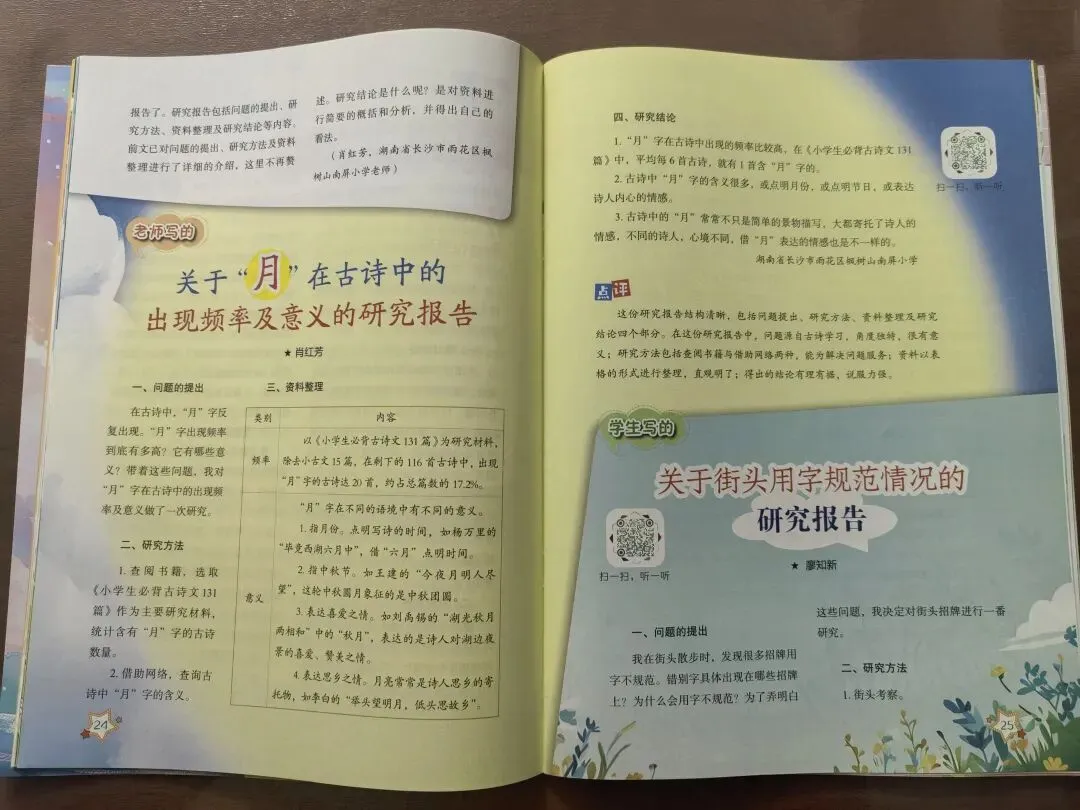 报告了。研究报告包括问题的提出、研
究方法、资料整理及研究结论等内容。
前文已对问题的提出、研究方法及资料
整理进行了详细的介绍，这里不再赘
述。研究结论是什么呢？是对资料进
行简要的概括和分析，并得出自己的
看法。
（肖红芳，湖南省长沙市雨花区枫
树山南屏小学老师）
老师写的
关于“月”在古诗中的
出现频率及意义的研究报告
★ 肖红芳
一、问题的提出
在古诗中，“月”字反
复出现。“月”字出现频率
到底有多高？它有哪些意
义？带着这些问题，我对
“月”字在古诗中的出现频
率及意义做了一次研究。
二、研究方法
1. 查阅书籍，选取
《小学生必背古诗文131
篇》作为主要研究材料，
统计含有“月”字的古诗
数量。
2. 借助网络，查询古
诗中“月”字的含义。
三、资料整理
类别 内容
频率
以《小学生必背古诗文131篇》为研究材料，
除去小古文15篇，在剩下的116首古诗中，出现
“月”字的古诗达20首，约占总篇数的17.2%。
意义
“月”字在不同的语境中有不同的意义。
1. 指月份。点明写诗的时间，如杨万里的
“毕竟西湖六月中”，借“六月”点明时间。
2. 指中秋节。如王建的“今夜月明人尽
望”，这轮中秋圆月象征的是中秋团圆。
3. 表达喜爱之情。如刘禹锡的“湖光秋月
两相和”中的“秋月”，表达的是诗人对湖边夜
景的喜爱、赞美之情。
4. 表达思乡之情。月亮常常是诗人思乡的寄
托物，如李白的“举头望明月，低头思故乡”。
24
四、研究结论
1. “月”字在古诗中出现的频率比较高，在《小学生必背古诗文131
篇》中，平均每6首古诗，就有1首含“月”字的。
2. 古诗中“月”字的含义很多，或点明月份，或点明节日，或表达
诗人内心的情感。
3. 古诗中的“月”常常不只是简单的景物描写，大都寄托了诗人的
情感，不同的诗人，心境不同，借“月”表达的情感也是不一样的。
湖南省长沙市雨花区枫树山南屏小学
扫一扫，听一听
点评
这份研究报告结构清晰，包括问题提出、研究方法、资料整理及研究
结论四个部分。在这份研究报告中，问题源自古诗学习，角度独特，很有意
义；研究方法包括查阅书籍与借助网络两种，能为解决问题服务；资料以表
格的形式进行整理，直观明了；得出的结论有理有据，说服力强。
学生写的
关于街头用字规范情况的
研究报告
★ 廖知新
扫一扫，听一听
一、问题的提出
我在街头散步时，发现很多招牌用
字不规范。错别字具体出现在哪些招牌
上？为什么会用字不规范？为了弄明白
这些问题，我决定对街头招牌进行一番
研究。
二、研究方法
1. 街头考察。
25